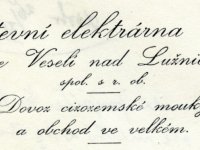 tevní elektrárna
e Veselí nad Lužnic
spol. s r. ob.
Dovoz cizozemské mouky
a obchod ve velkém.